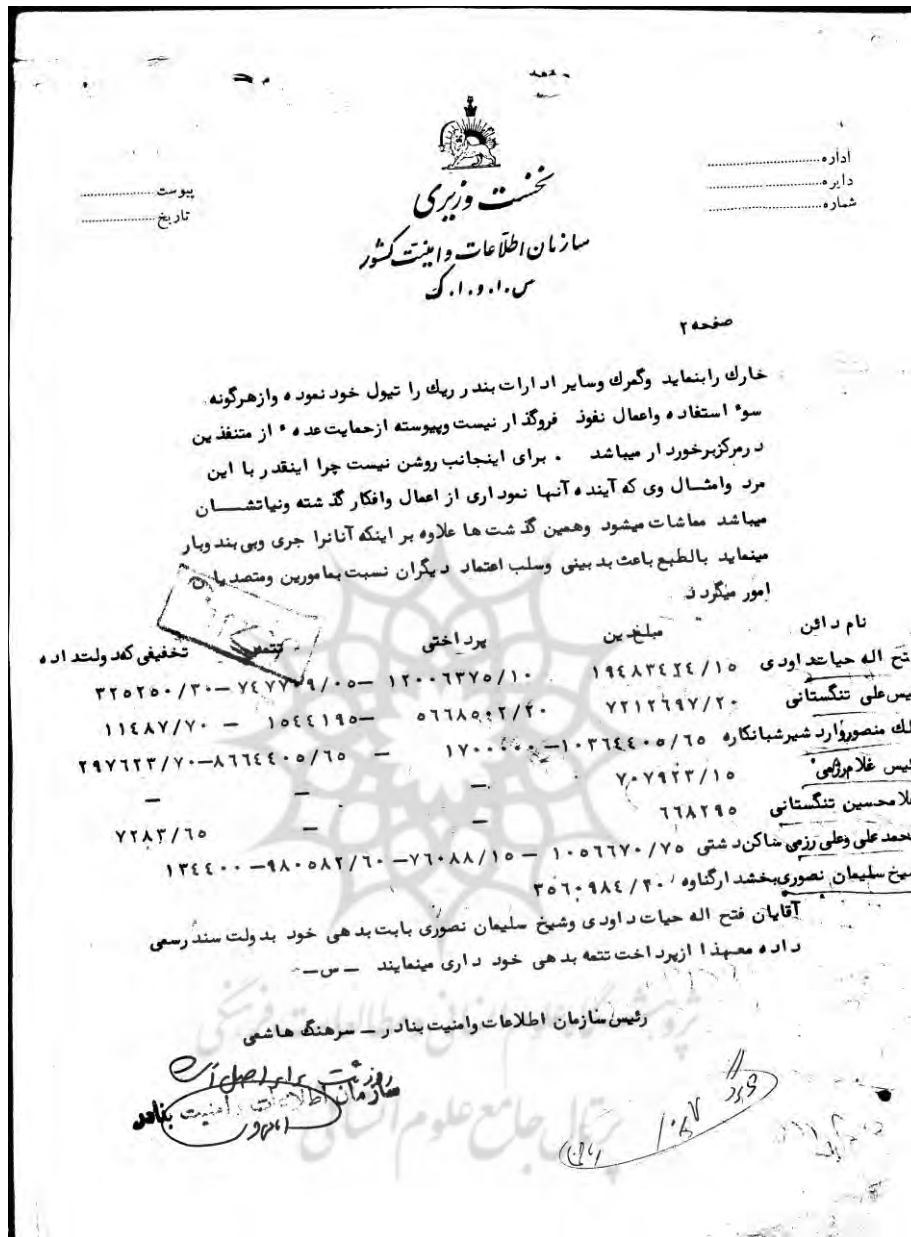 اداره
دایره
شماره
پیوست
تاریخ
نخست وزیری
سازمان اطلاعات و امنیت کشور
س.ا.و.ا.ک
صفحه ۲
خارك رابنماید وگمرك وسایر ادارات بندر ریك را تیول خود نموده وازهرگونه
سوء استفاده واعمال نفوذ فروگذار نیست وپیوسته ازحمایت عده ء از متنفذین
درمرکزبرخوردار میباشد . برای اینجانب روشن نیست چرا اینقدر با این
مرد وامثال وی که آینده آنها نموداری از اعمال وافکار گذشته ونیاتشان
میباشد معاشات میشود وهمین گذشت ها علاوه بر اینکه آنانرا جری وبی بند وبار
مینماید بالطبع باعث بدبینی وسلب اعتماد دیگران نسبت بمامورین ومتصدیان
امور میگردد
نام دافن مبلغ دین پرداختی تتمه تخفیفی که دولت داده
فتح اله حیات داودی ۱۹۴۸۳۴۲۴/۱۵ ۱۲۰۰۶۳۷۵/۱۰ – ۷۴۷۷۰۹/۰۵ – ۳۲۵۲۵۰/۳۰
رئیس علی تنگستانی ۷۲۱۲۶۹۷/۲۰ ۵۶۶۸۵۰۲/۲۰ – ۱۵۴۴۱۹۵ – ۱۱۴۸۷/۷۰
ملك منصور وارد شیر شبانکاره ۱۰۳۶۴۴۰۵/۶۵ – ۱۷۰۰۰۰۰ – ۸۶۶۴۴۰۵/۶۵ – ۲۹۷۶۲۳/۷۰
رئیس غلام رزمی ۷۰۷۹۲۳/۱۵ – – –
غلامحسین تنگستانی ۶۶۸۲۹۵ – – ۷۲۸۳/۶۵
محمد علی وعلی رزمی ساکن دشتی ۱۰۵۶۶۷۰/۷۵ – ۷۶۰۸۸/۱۵ – ۹۸۰۵۸۲/۶۰ – ۱۳۴۴۰۰
شیخ سلیمان نصوری بخشدار گناوه ۳۵۶۰۹۸۴/۳۰
آقایان فتح اله حیات داودی وشیخ سلیمان نصوری بابت بدهی خود بدولت سند رسمی
داده معهذا ازپرداخت تتمه بدهی خود داری مینمایند – س–
رئیس سازمان اطلاعات وامنیت بنادر – سرهنگ هاشمی
رونوشت برابر اصل است
سازمان اطلاعات و امنیت بنادر
پژوهشگاه علوم انسانی و مطالعات فرهنگی
پرتال جامع علوم انسانی